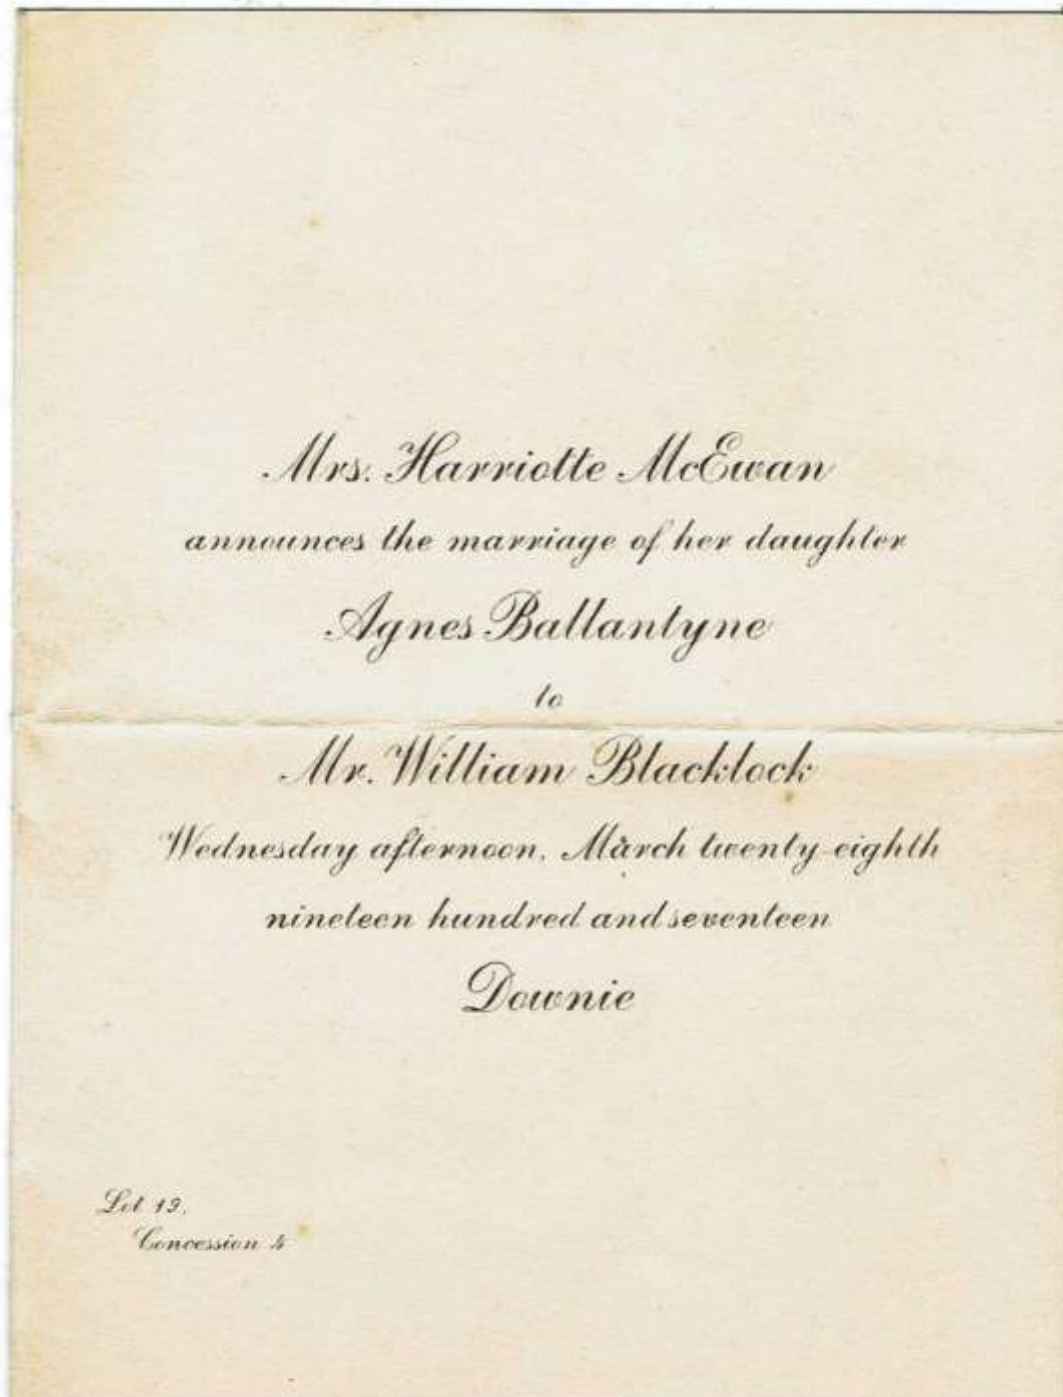 Mrs. Harriotte McEwan
announces the marriage of her daughter
Agnes Ballantyne
to
Mr. William Blacklock
Wednesday afternoon, March twenty-eighth
nineteen hundred and seventeen
Downie
Lot 19,
Concession 4